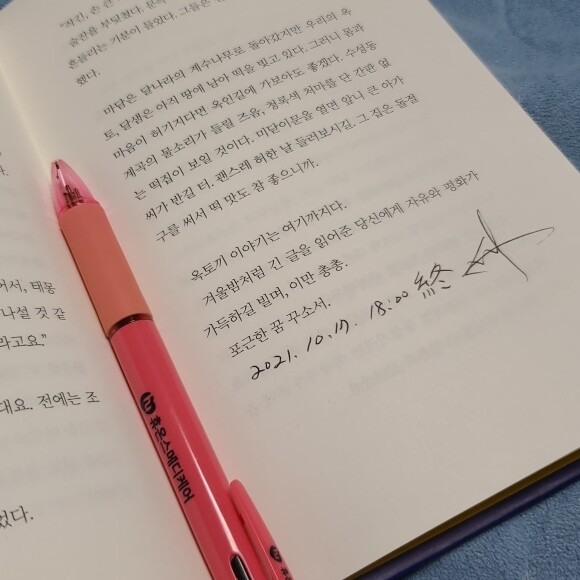 "작긴, 손 큰
술잔을 부딪쳤다. 문득
흔들리는 기분이 들었다. 그들은
했다.
미담은 달나라의 계수나무로 돌아갔지만 우리의 옥
토, 달샘은 아직 땅에 남아 떡을 빚고 있다. 그러니 몸과
마음이 허기지다면 옥인길에 가보아도 좋겠다. 수성동
계곡의 물소리가 들릴 즈음, 청록색 처마를 단 간판 없
는 떡집이 보일 것이다. 미닫이문을 열면 알니 큰 아가
씨가 반길 터. 괜스레 허한 날 들러보시길. 그 집은 돌절
구를 써서 떡 맛도 참 좋으니까.
옥토끼 이야기는 여기까지다.
겨울밤처럼 긴 글을 읽어준 당신에게 자유와 평화가
가득하길 빌며, 이만 총총.
포근한 꿈 꾸소서.
2021. 10. 17. 18:00 終
어서, 태몽
나설 것 같
라고요."
대요. 전에는 조
었다.
휴온스메디케어